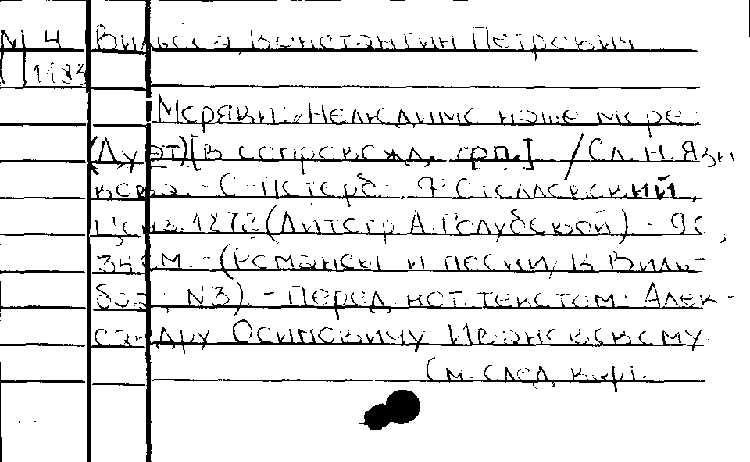 М 4 Вильбоа, Константин Петрович
1184
Моряки: "Нелюдимо наше море":
(Дуэт) [в сопровожд. фп.] / Сл. Н. Язы
кова. - С-Петерб: Ф. Стелловский,
ценз. 1872 (Литогр А. Голубской) - 9с,
35см. - (Романсы и песни / К Виль-
боа; №3) - Перед нот. текстом: Алек-
сандру Осиповичу Ивановскому.
См. след. карт.